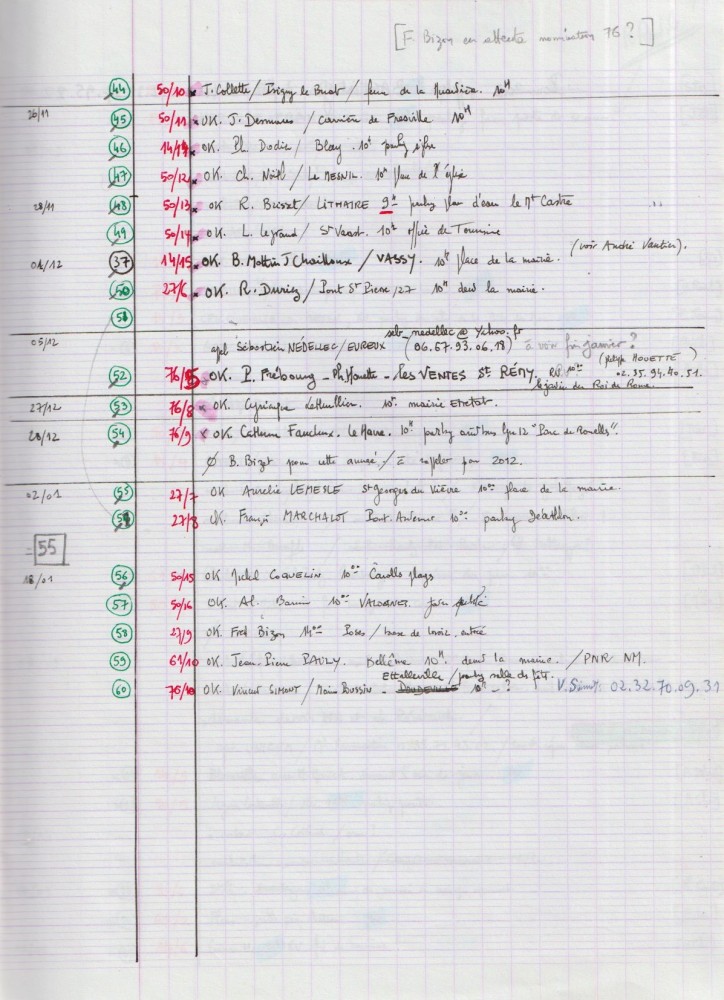 [F. Bizon en attente nomination 76 ?]
44 50/10 x J. Collette / Isigny le Buat / 10H
26/11 45 50/11 x OK. J. Desmares / carrière de Fresville 10H
46 14/14 x OK. Ph. Dodin / Blay . 10H parking église
47 50/12 x OK. Ch. Noël / Le MESNIL. 10H place de l'église
28/11 48 50/13 x OK R. Busset / LITHAIRE 9H parking plan d'eau le Mt Castre
49 50/14 x OK. L. Legrand / St Vaast. 10H office de Tourisme
(voir André Vautier).
04/12 37 14/15 x OK. B. Mottin J Chailloux / VASSY. 10H place de la mairie.
50 27/6 x OK. R. Duriez / Pont St Pierre /27 10H devt la mairie.
51
seb_nedellec@yahoo.fr
05/12 apl Sébastien NÉDELLEC / EVREUX (06.67.93.06.18) à voir fin janvier ?
(Philippe HOUETTE)
52 76/5 OK. P. Frébourg - Ph. Houette - Les VENTES St RÉMY, RV 10H 02.35.94.40.51.
le jardin du Roi de Rome
27/12 53 76/8 x OK. Cyriaque Lethuillier. 10H mairie Etretat.
28/12 54 76/9 x OK. Catherine Faucheux. Le Havre. 10H parking autobus lgne 12 "Parc de Rouelles".
Ø B. Bizet pour cette année / à rappeler pour 2012.
02/01 55 27/7 OK Aurélie LEMESLE St Georges du Vièvre 10H place de la mairie.
27/8 OK. François MARCHALOT Pont. Audemer 10H parking Décathlon.
= 55
18/01 56 50/15 OK Michel COQUELIN 10H Carolles plage
57 50/16 OK. Al. VALOGNES
58 27/9 OK. Fred Bizon 14H Poses / base de loisir. entrée
59 61/10 OK. Jean-Pierre PAULY. Bellême 10H. devt la mairie. / PNR NM.
Ettalleville / parking salle des fêtes.
60 76/10 OK. Vincent SIMONT / Bussin - DOUDEVILLE 10H - ? V. Simont: 02.32.70.09.31